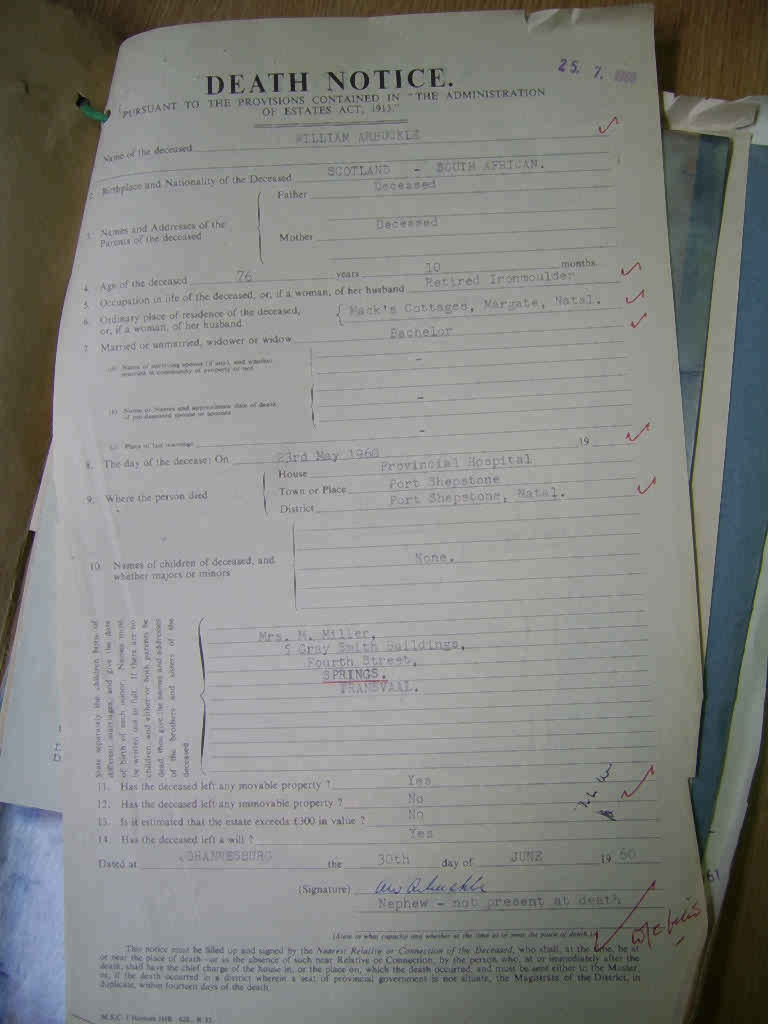 DEATH NOTICE.
25. 7.
PURSUANT TO THE PROVISIONS CONTAINED IN "THE ADMINISTRATION
OF ESTATES ACT, 1913."
Name of the deceased WILLIAM ARBUCKLE
2. Birthplace and Nationality of the Deceased SCOTLAND - SOUTH AFRICAN.
3. Names and Addresses of the
Parents of the deceased
Father Deceased
Mother Deceased
4. Age of the deceased 76 years 10 months.
5. Occupation in life of the deceased, or, if a woman, of her husband Retired Ironmoulder
6. Ordinary place of residence of the deceased,
or, if a woman, of her husband
Mack's Cottages, Margate, Natal.
7. Married or unmarried, widower or widow Bachelor
(a) Name of surviving spouse (if any), and whether
married in community of property or not
-
(b) Name or Names and approximate date of death
of pre-deceased spouse or spouses
-
(c) Place of last marriage -
8. The day of the decease: On 23rd May 1960 19
9. Where the person died
House Provincial Hospital
Town or Place Port Shepstone
District Port Shepstone, Natal.
10. Names of children of deceased, and
whether majors or minors
None.
State separately the children born of
different marriages, and give the date
of birth of each minor. Names must
be written out in full. If there are no
children, and either or both parents be
dead, then give the names and addresses
of the brothers and sisters of the
deceased
Mrs. M. Miller,
5 Gray Smith Buildings,
Fourth Street,
SPRINGS.
TRANSVAAL.
11. Has the deceased left any movable property ? Yes
12. Has the deceased left any immovable property ? No
13. Is it estimated that the estate exceeds £300 in value ? No
14. Has the deceased left a will ? Yes
Dated at JOHANNESBURG the 30th day of JUNE 1960
(Signature) Arbuckle
Nephew - not present at death
(State in what capacity and whether at the time at or near the place of death.)
This notice must be filled up and signed by the Nearest Relative or Connection of the Deceased, who shall, at the time, be at
or near the place of death—or in the absence of such near Relative or Connection, by the person who, at or immediately after the
death, shall have the chief charge of the house in, or the place on, which the death occurred; and must be sent either to the Master,
or, if the death occurred in a district wherein a seat of provincial government is not situate, the Magistrate of the District, in
duplicate, within fourteen days of the death.
61